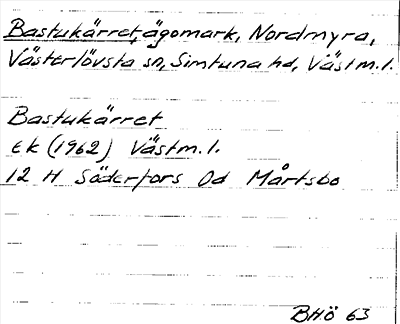 Bastukärret, ägomark, Nordmyra,
Västerlövsta sn, Simtuna hd, Västm.l.
Bastukärret
Ek (1962) Västm.l.
12 H Söderfors 0d Mårtsbo
BHÖ 63